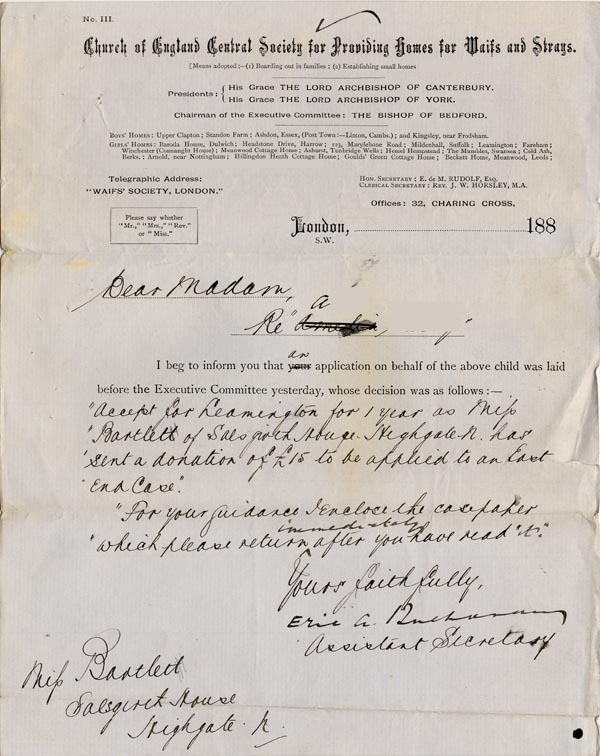 No. III.
Church of England Central Society for Providing Homes for Waifs and Strays.
[Means adopted :—(1) Boarding out in families ; (2) Establishing small homes
Presidents: { His Grace THE LORD ARCHBISHOP OF CANTERBURY.
His Grace THE LORD ARCHBISHOP OF YORK.
Chairman of the Executive Committee : THE BISHOP OF BEDFORD.
Boys' Homes: Upper Clapton; Standon Farm; Ashdon, Essex, (Post Town:—Linton, Cambs.); and Kingsley, near Frodsham.
Girls' Homes: Baroda House, Dulwich; Headstone Drive, Harrow; 123, Marylebone Road; Mildenhall, Suffolk; Leamington; Fareham;
Winchester (Connaught House); Meanwood Cottage Home; Ashurst, Tunbridge Wells; Hemel Hempstead; The Mumbles, Swansea; Cold Ash,
Berks.; Arnold, near Nottingham; Hillingdon Heath Cottage Home; Goulds' Green Cottage Home; Beckett Home, Meanwood, Leeds;
Telegraphic Address:
"WAIFS' SOCIETY, LONDON."
Hon. Secretary: E. de M. RUDOLF, Esq.
Clerical Secretary: Rev. J. W. HORSLEY, M.A.
Offices: 32, CHARING CROSS,
Please say whether
"Mr.," "Mrs.," "Rev."
or "Miss."
London, 188
S.W.
Dear Madam,
a
Re "
an
I beg to inform you that your application on behalf of the above child was laid
before the Executive Committee yesterday, whose decision was as follows:—
"Accept for Leamington for 1 year as Miss
"Bartlett of Salsgirth House Highgate N. has
"sent a donation of £15 to be applied to an East
"End Case".
"For your guidance I enclose the casepaper
immediately
"which please return after you have read "it".
Yours faithfully,
Eric A. Buchanan
Assistant Secretary
Miss Bartlett
Salsgirth House
Highgate N.